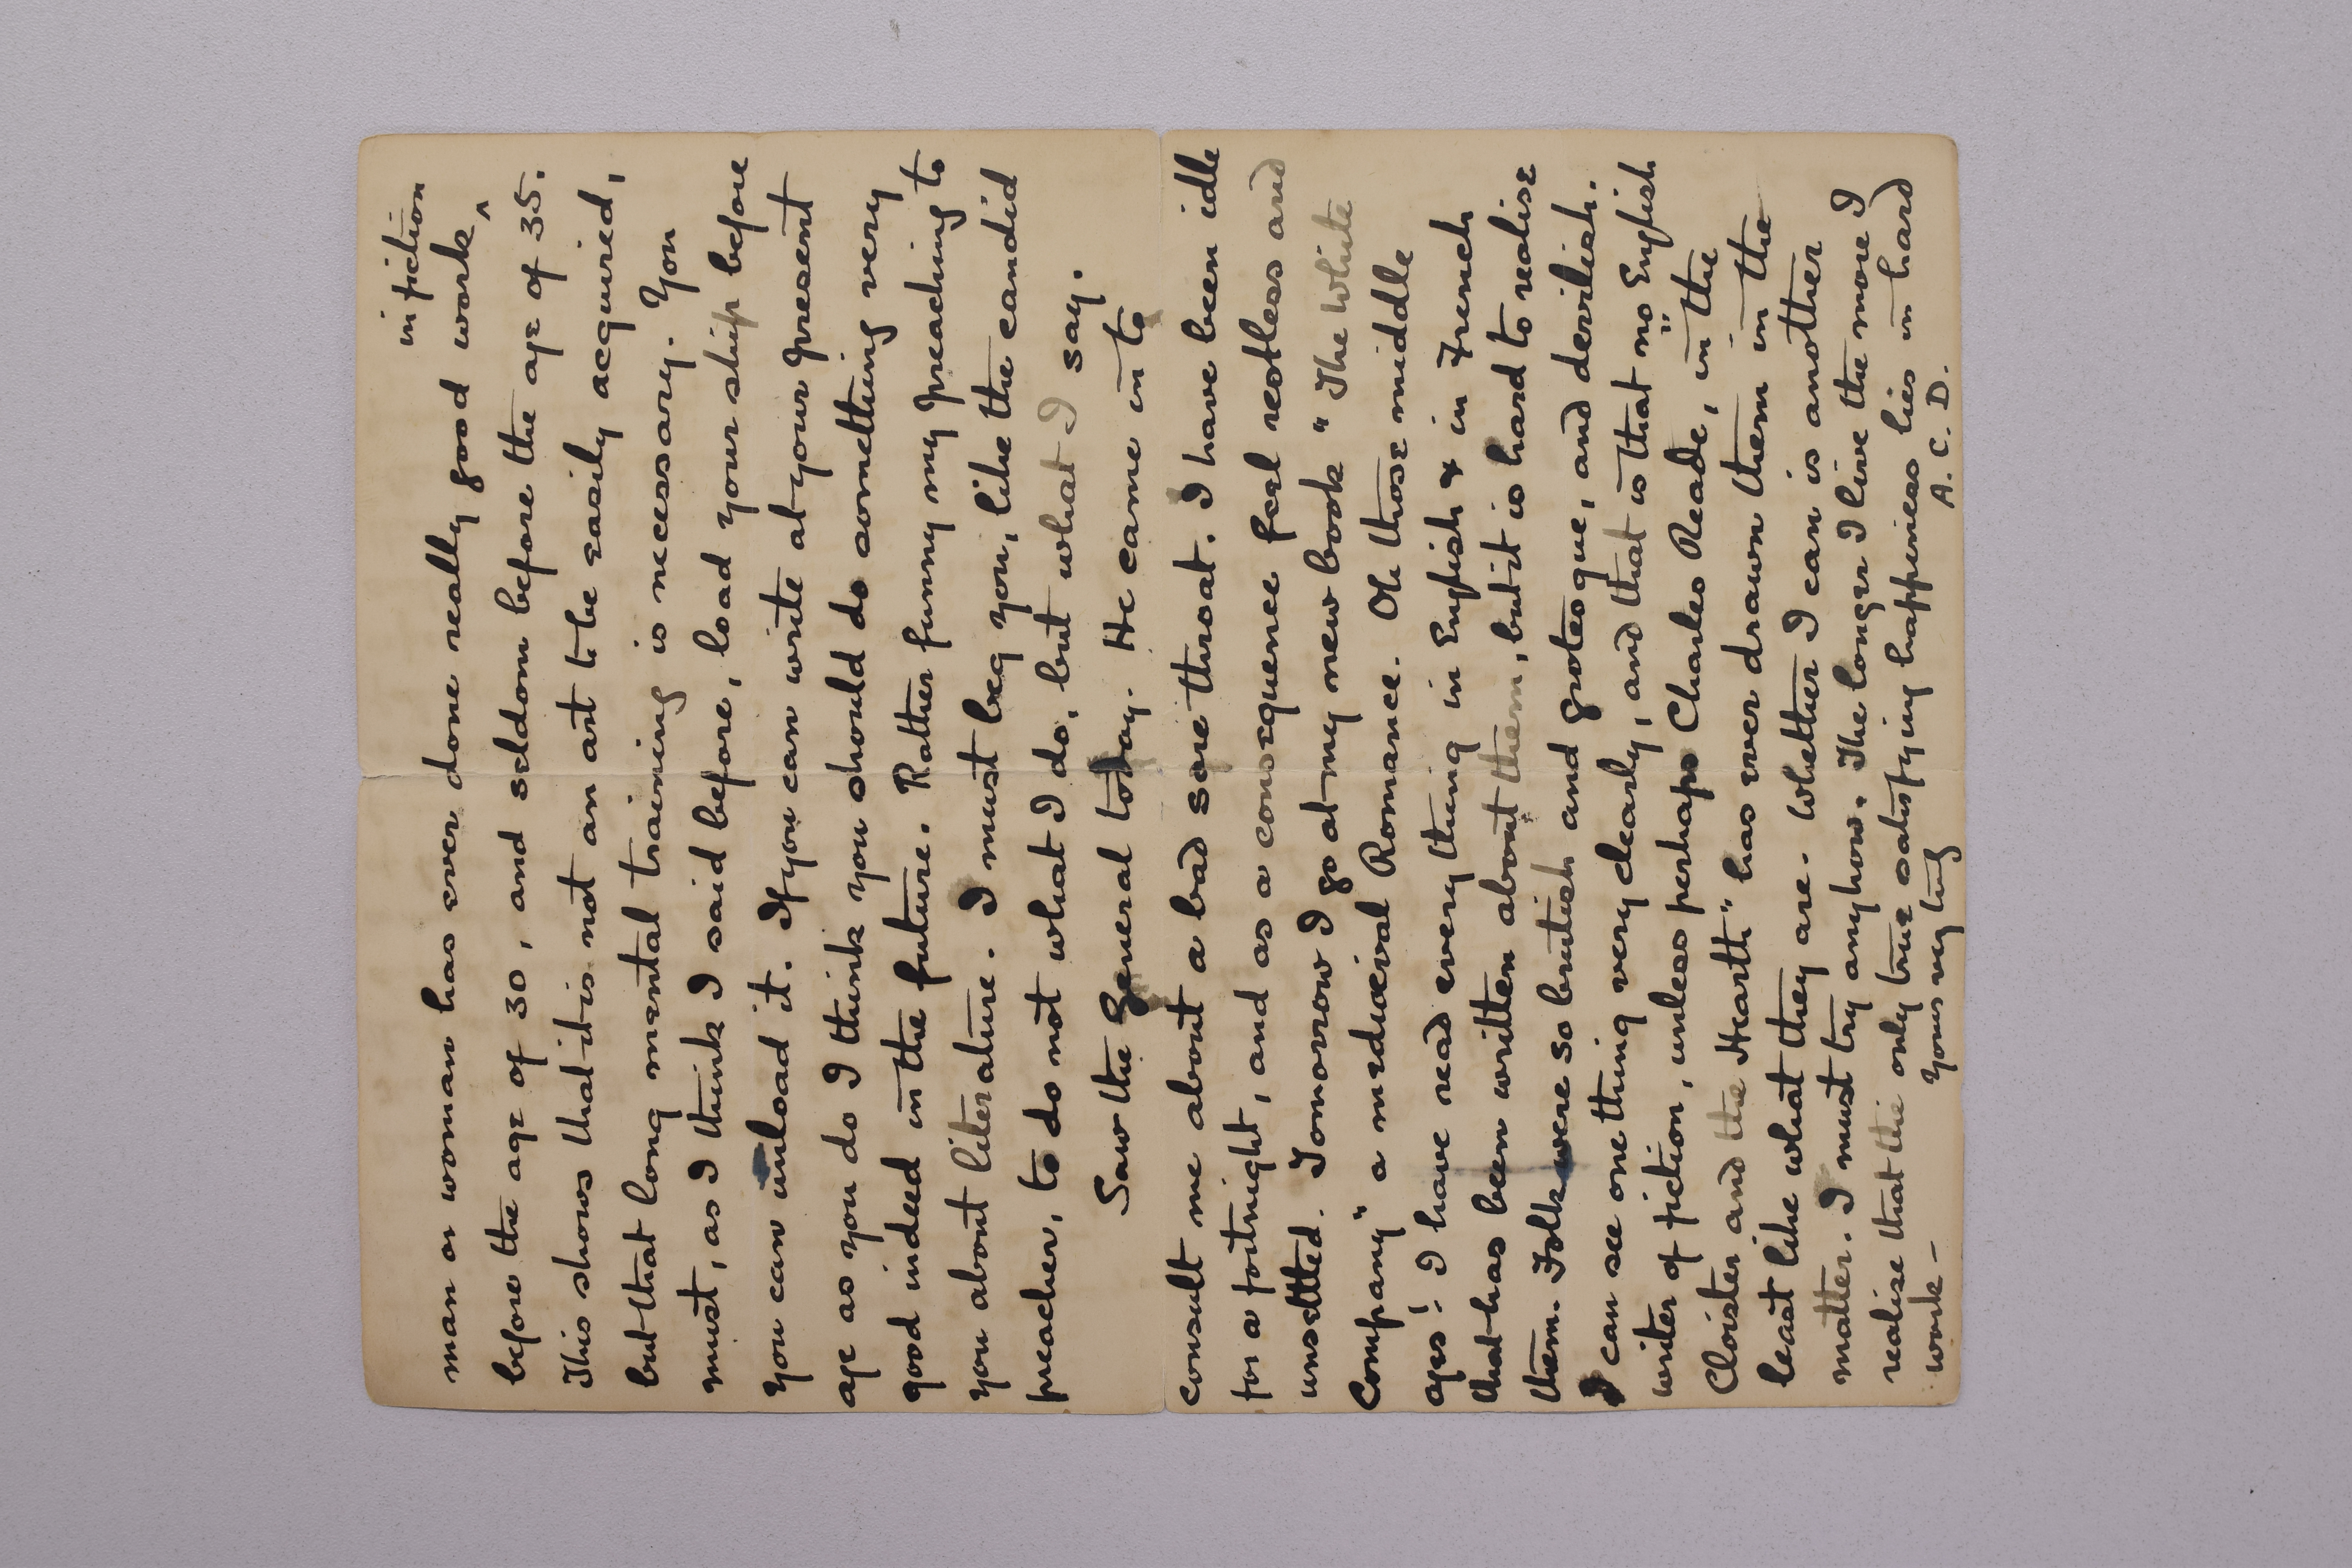 in fiction
man or woman has ever done really good work ^
before the age of 30, and seldom before the age of 35.
This shows that it is not an art to be easily acquired,
but that long mental training is necessary. You
must, as I think I said before, load your ship before
you can unload it. If you can write at your present
age as you do I think you should do something very
good indeed in the future. Rather funny my preaching to
you about literature. I must beg you, like the candid
preacher, to do not what I do, but what I say.
Saw the General today. He came in to
consult me about a bad sore throat. I have been idle
for a fortnight, and as a consequence feel restless and
unsettled. Tomorrow I go at my new book "The White
Company" a mediœval Romance. Oh those middle
ages! I have read everything in English & in French
that has been written about them, but it is hard to realise
them. Folk were so brutish and grotesque, and devilish.
I can see one thing very clearly, and that is that no English
writer of fiction, unless perhaps Charles Reade, in the
Cloister and the Hearth" has ever drawn them in the
least like what they are. Whether I can is another
matter. I must try anyhow. The longer I live the more I
realise that the only true satisfying happiness lies in hard
work –
Yours very truly
A. C. D.